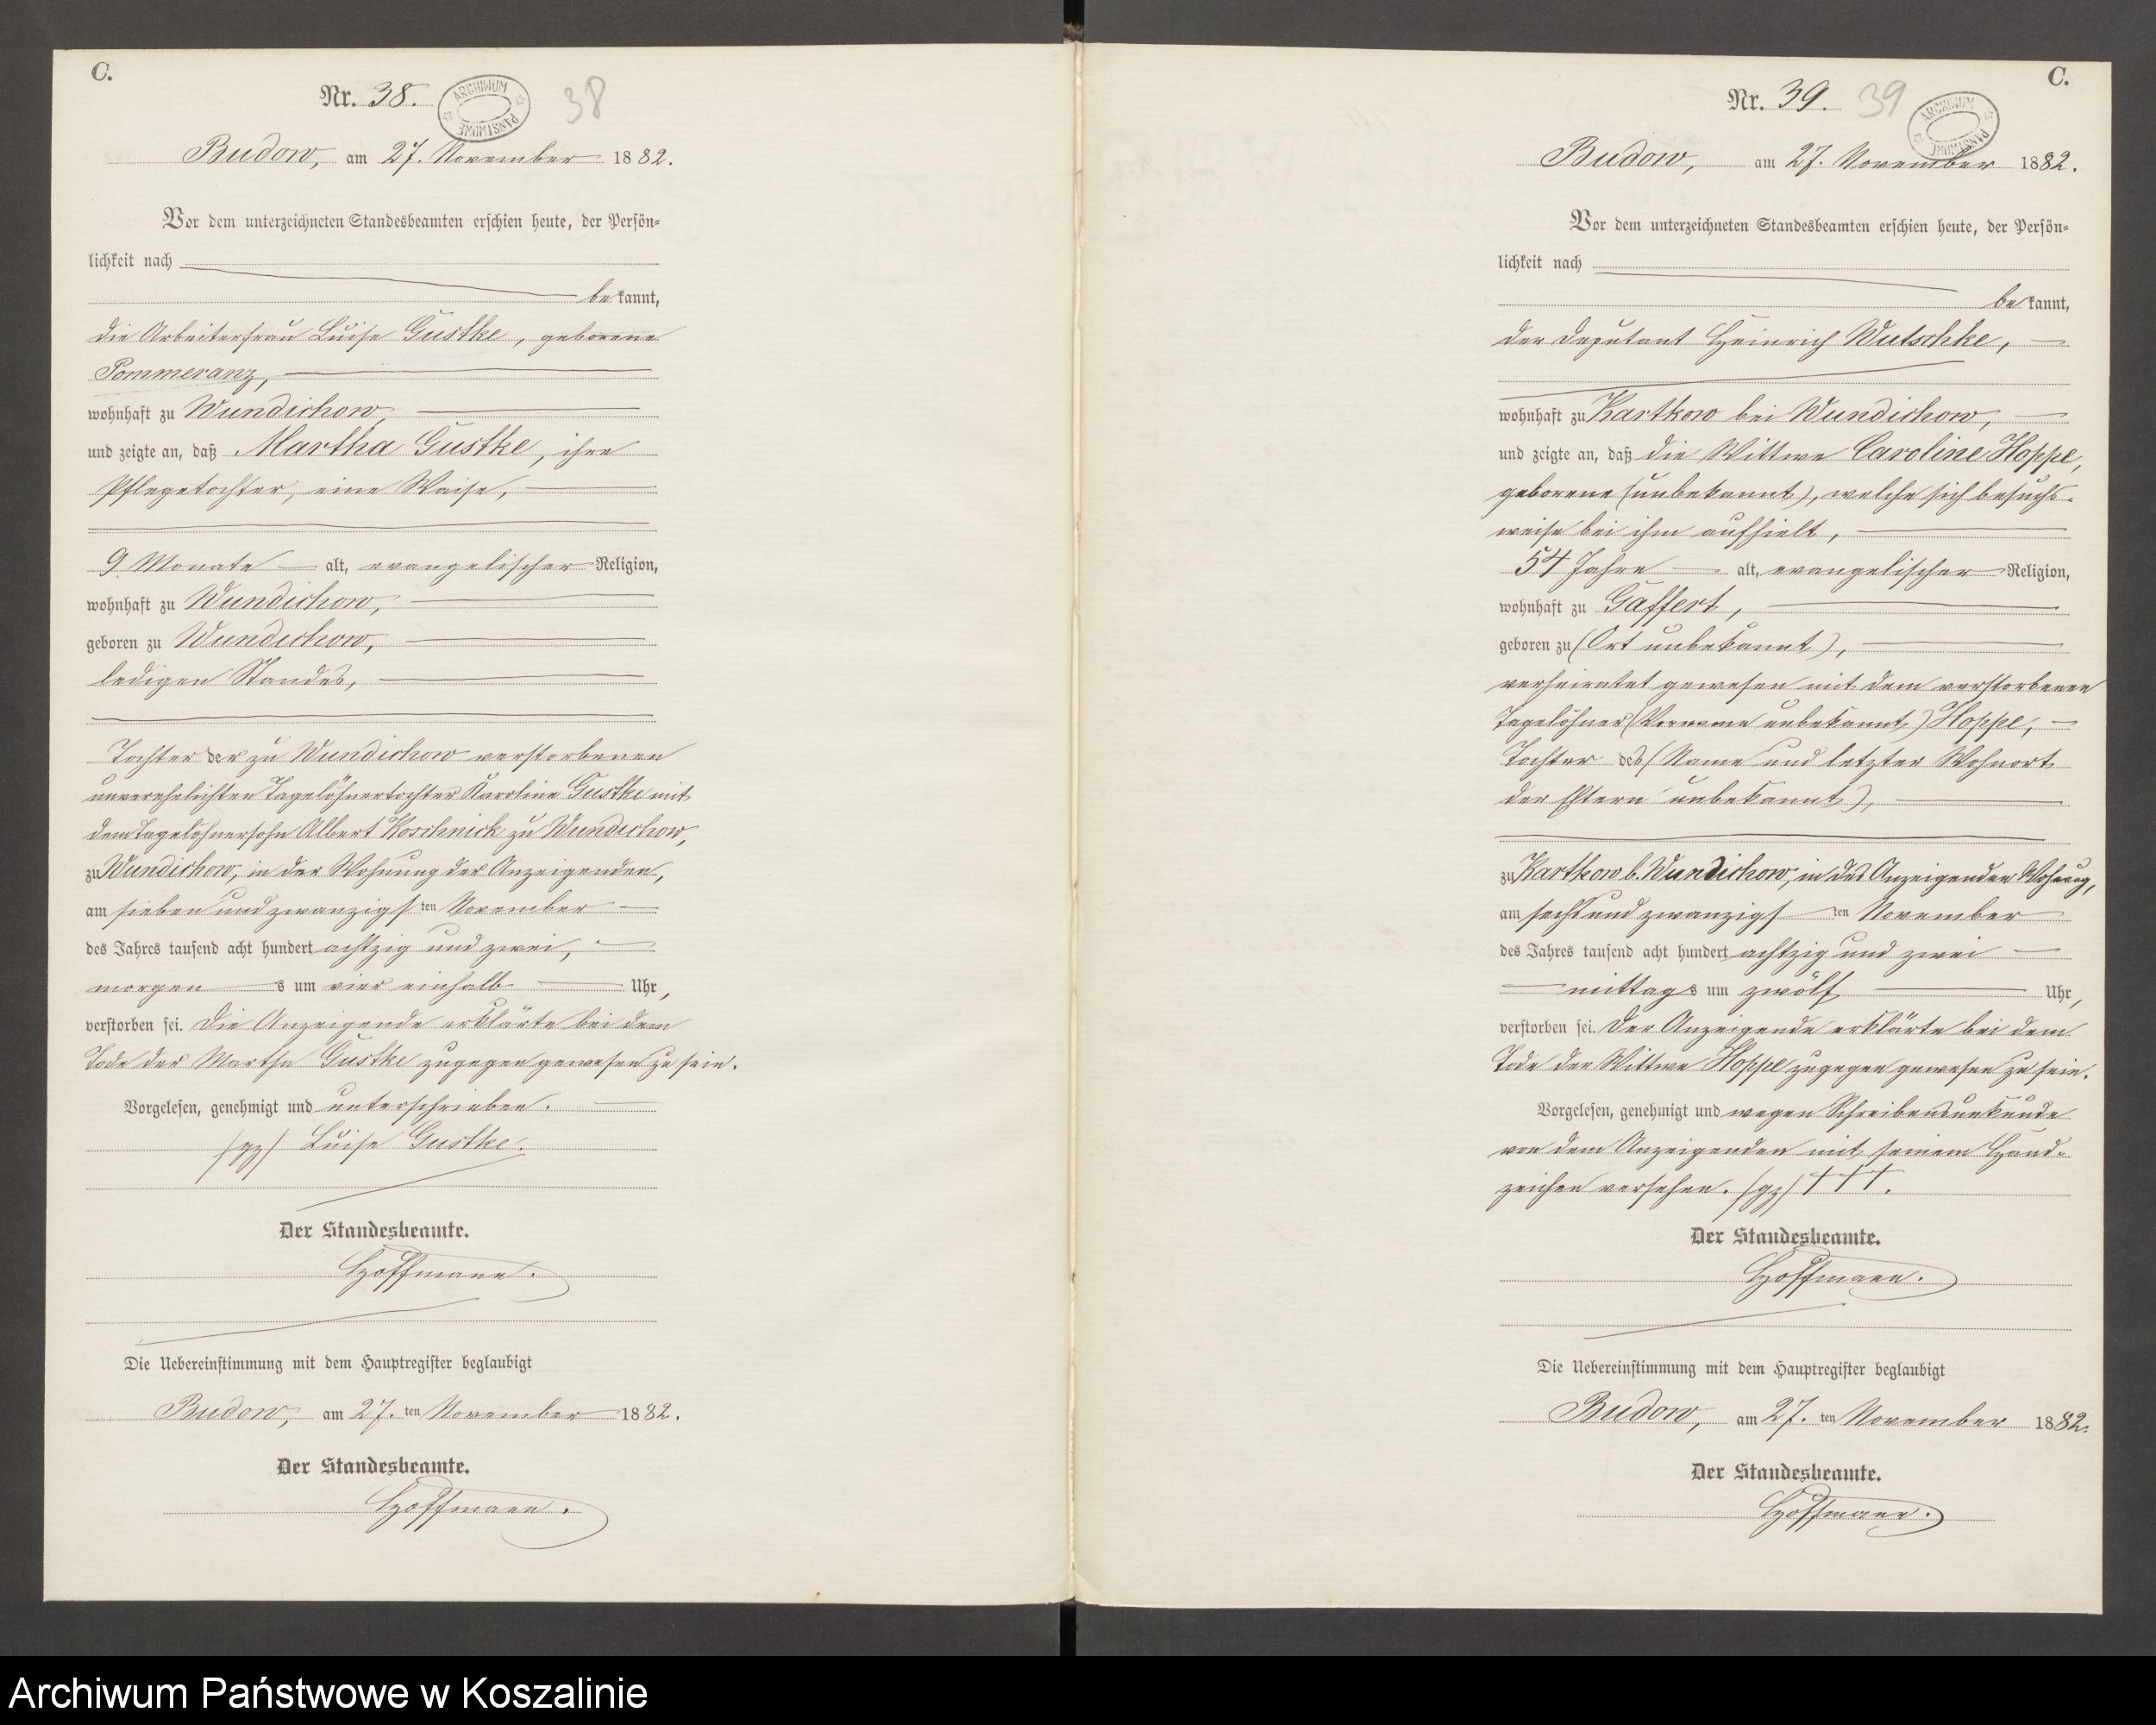 C.
Nr. 38.
ARCHIWUM PAŃSTWOWE
38
Budow, am 27. November 1882.
Vor dem unterzeichneten Standesbeamten erschien heute, der Persön-
lichkeit nach
bekannt,
die Arbeiterfrau Luise Gustke, geborene
Pommeranz,
wohnhaft zu Wundichow
und zeigte an, daß Martha Gustke, ihre
Pflegetochter, eine Waise,
9 Monate alt, evangelischer Religion,
wohnhaft zu Wundichow,
geboren zu Wundichow,
ledigen Standes,
Tochter der zu Wundichow verstorbenen
unverehelichten Tagelöhnertochter Karoline Gustke mit
dem Tagelöhnersohn Albert Koschnick zu Wundichow,
zu Wundichow, in der Wohnung der Anzeigenden,
am sieben und zwanzigsten November
des Jahres tausend acht hundert achtzig und zwei,
morgens um vier einhalb Uhr,
verstorben sei. Die Anzeigende erklärte bei dem
Tode der Martha Gustke zugegen gewesen zu sein.
Vorgelesen, genehmigt und unterschrieben.
(gz) Luise Gustke.
Der Standesbeamte.
Hoffmann.
Die Uebereinstimmung mit dem Hauptregister beglaubigt
Budow, am 27. ten November 1882.
Der Standesbeamte.
Hoffmann.
C.
Nr. 39.
39
ARCHIWUM PAŃSTWOWE
Budow, am 27. November 1882.
Vor dem unterzeichneten Standesbeamten erschien heute, der Persön-
lichkeit nach
bekannt,
der Deputant Heinrich Wutschke,
wohnhaft zu Kartkow bei Wundichow,
und zeigte an, daß die Wittwe Caroline Hoppe,
geborene (unbekannt), welche sich besuchs-
weise bei ihm aufhielt,
54 Jahre alt, evangelischer Religion,
wohnhaft zu Gaffert,
geboren zu (Ort unbekannt),
verheiratet gewesen mit dem verstorbenen
Tagelöhner (Vorname unbekannt) Hoppe,
Tochter des (Name und letzter Wohnort
der Eltern unbekannt),
zu Kartkow b. Wundichow, in des Anzeigenden Wohnung,
am sechs und zwanzigsten November
des Jahres tausend acht hundert achtzig und zwei
mittags um zwölf Uhr,
verstorben sei. Der Anzeigende erklärte bei dem
Tode der Wittwe Hoppe zugegen gewesen zu sein.
Vorgelesen, genehmigt und wegen Schreibensunkunde
von dem Anzeigenden mit seinem Hand-
zeichen versehen. (gz) +++.
Der Standesbeamte.
Hoffmann.
Die Uebereinstimmung mit dem Hauptregister beglaubigt
Budow, am 27. ten November 1882.
Der Standesbeamte.
Hoffmann.
Archiwum Państwowe w Koszalinie